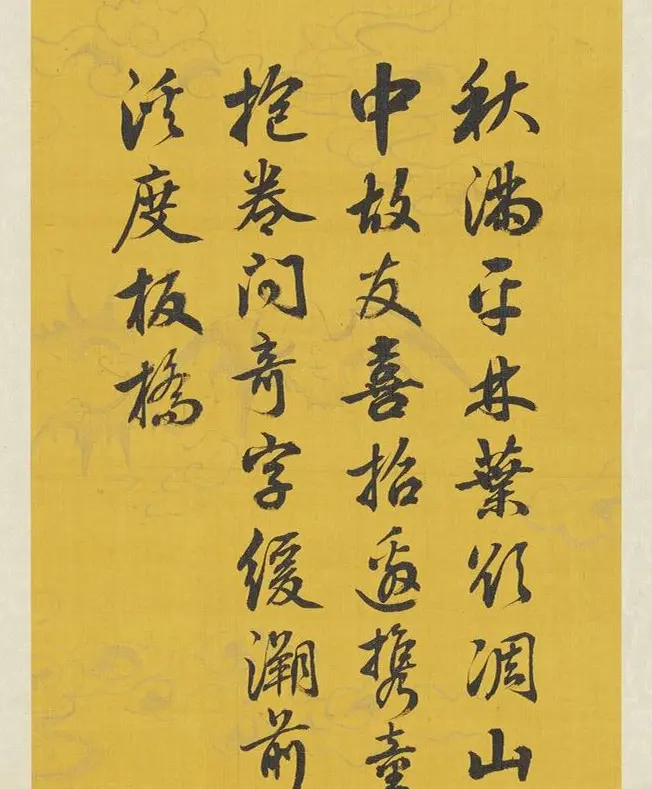 秋滿平林葉欲凋山
中故友喜招邀携童
抱卷問奇字緩溯前
溪度板橋